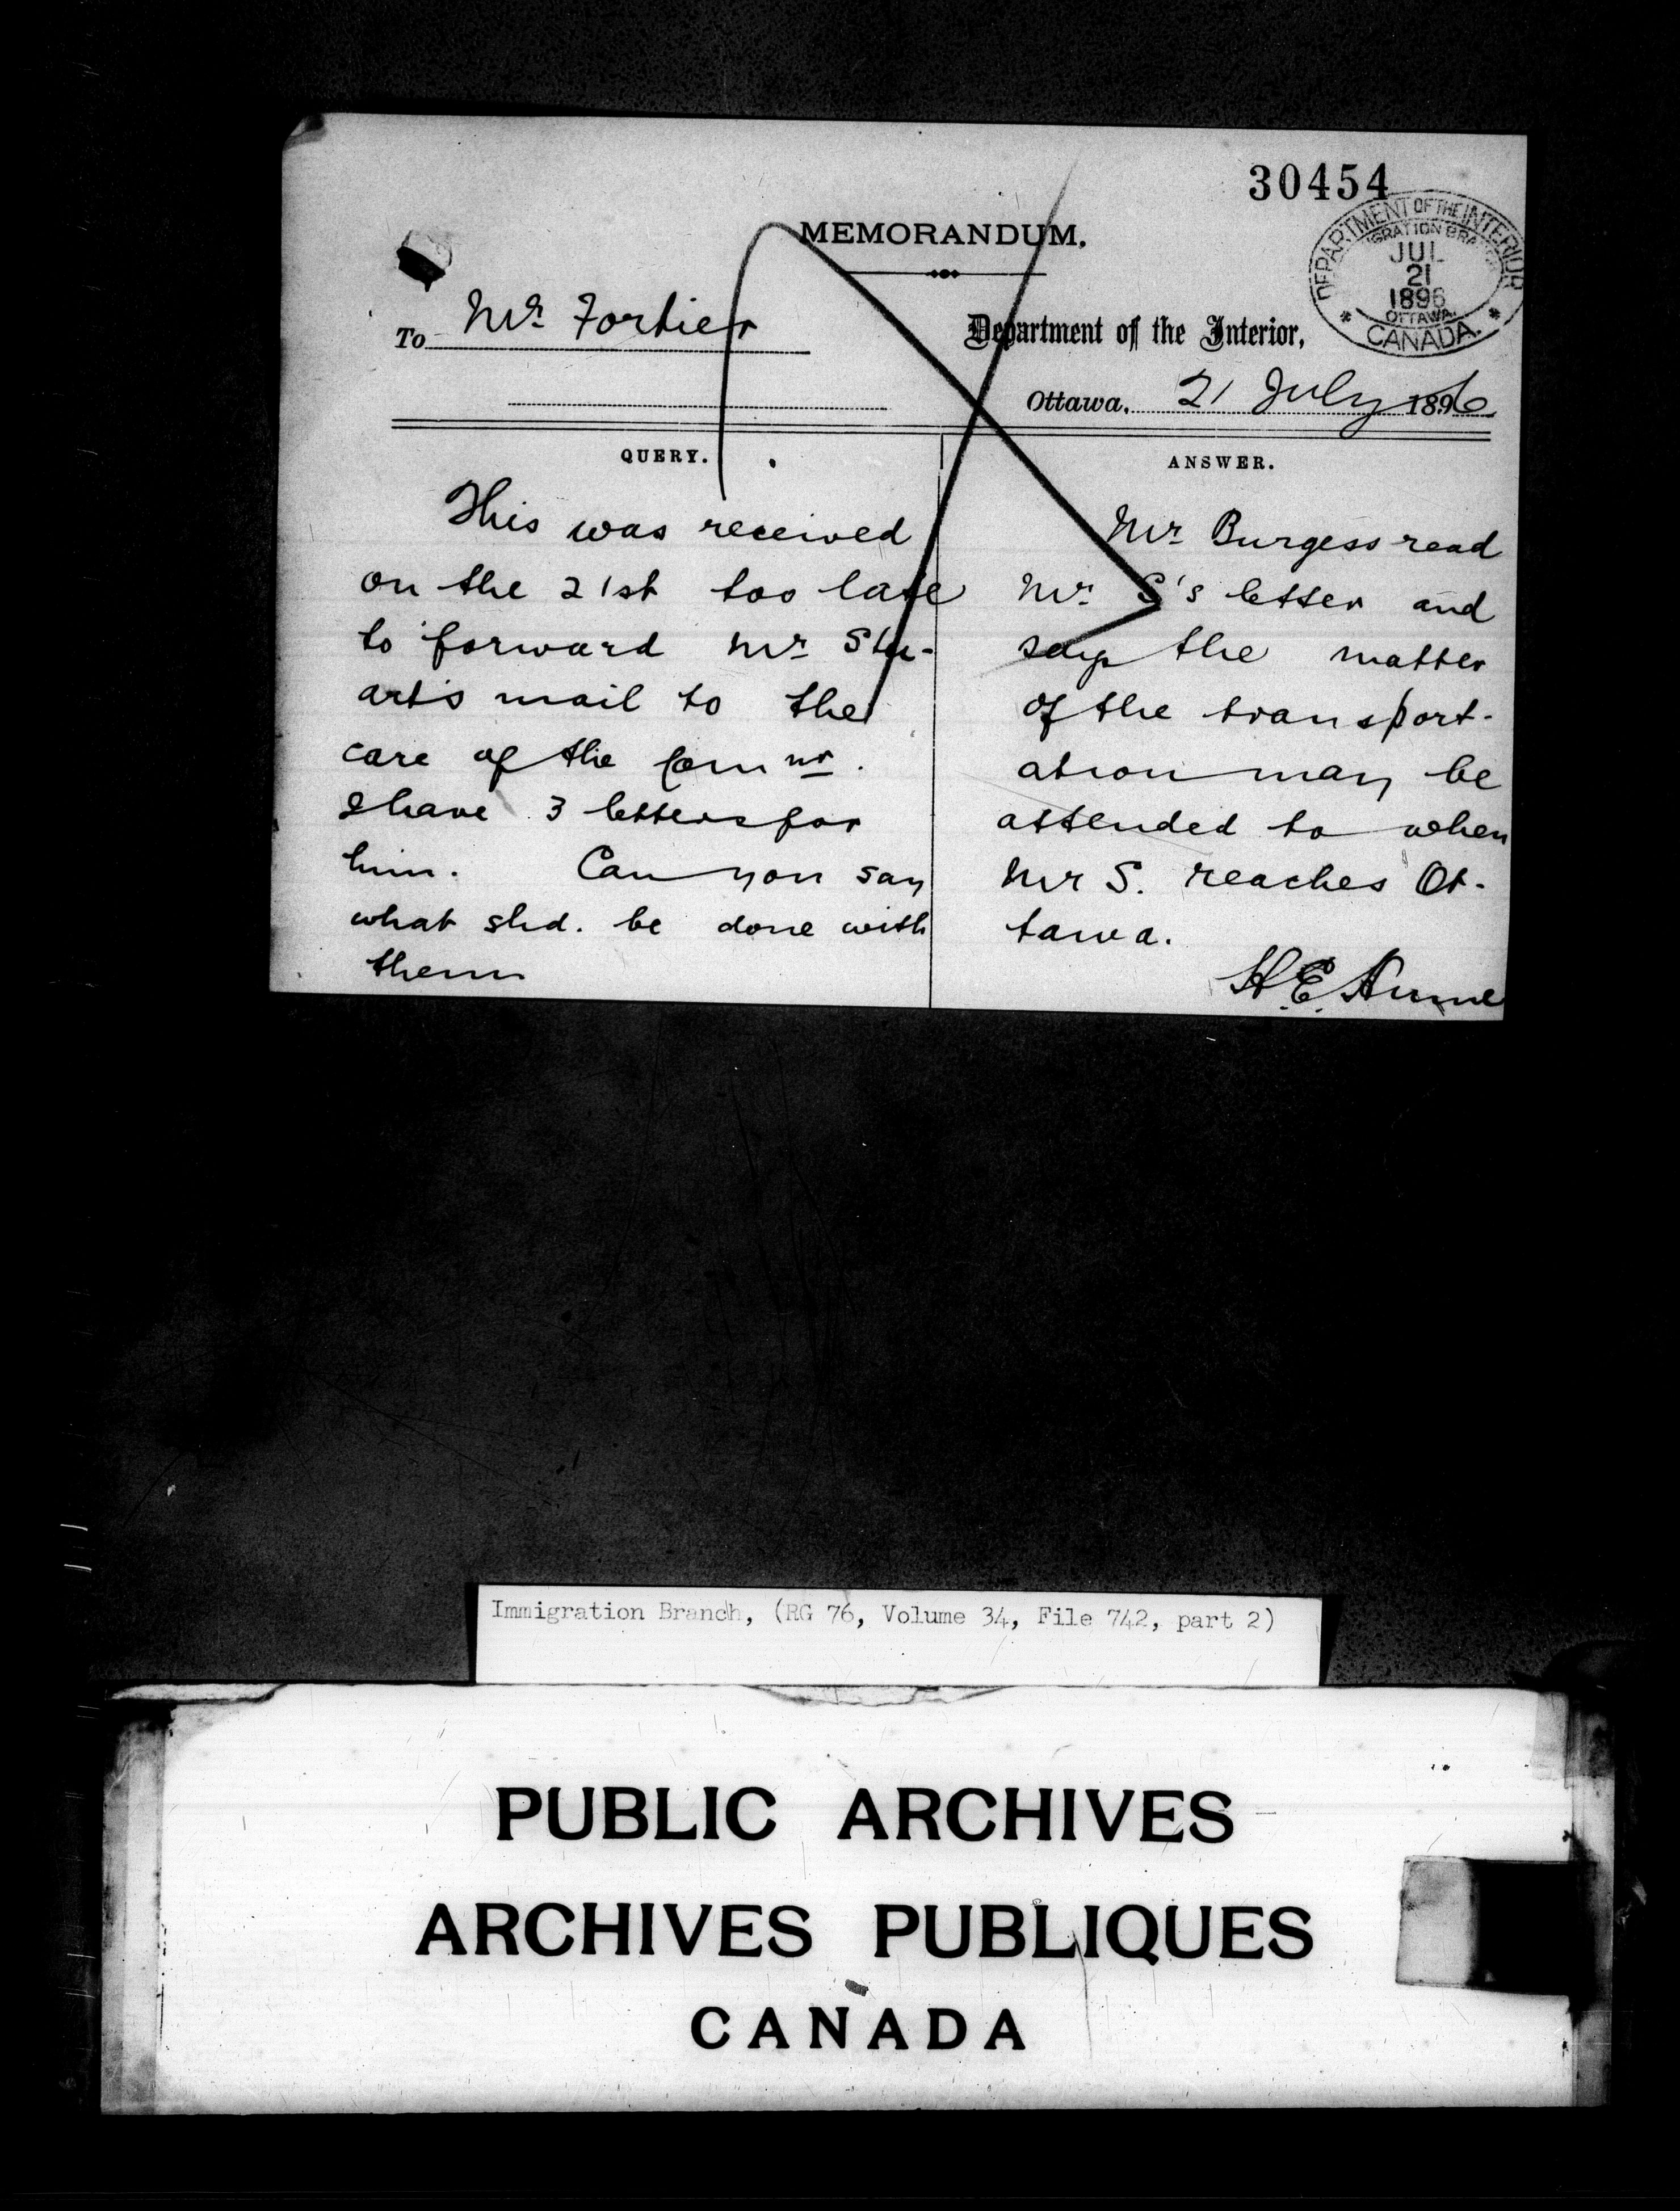 30454
MEMORANDUM.
DEPARTMENT OF THE INTERIOR
IMMIGRATION BRANCH
JUL
21
1896
OTTAWA
* CANADA. *
To Mr. Fortier
Department of the Interior,
Ottawa, 21 July 1896
QUERY.
This was received
on the 21st too late
to forward Mr Stu-
art's mail to the
care of the Commr.
I have 3 letters for
him. Can you say
what shd. be done with
them
ANSWER.
Mr Burgess read
Mr S's letter and
says the matter
of the transport-
ation may be
attended to when
Mr S. reaches Ot-
tawa.
H.E. Hume
Immigration Branch, (RG 76, Volume 34, File 742, part 2)
PUBLIC ARCHIVES
ARCHIVES PUBLIQUES
CANADA